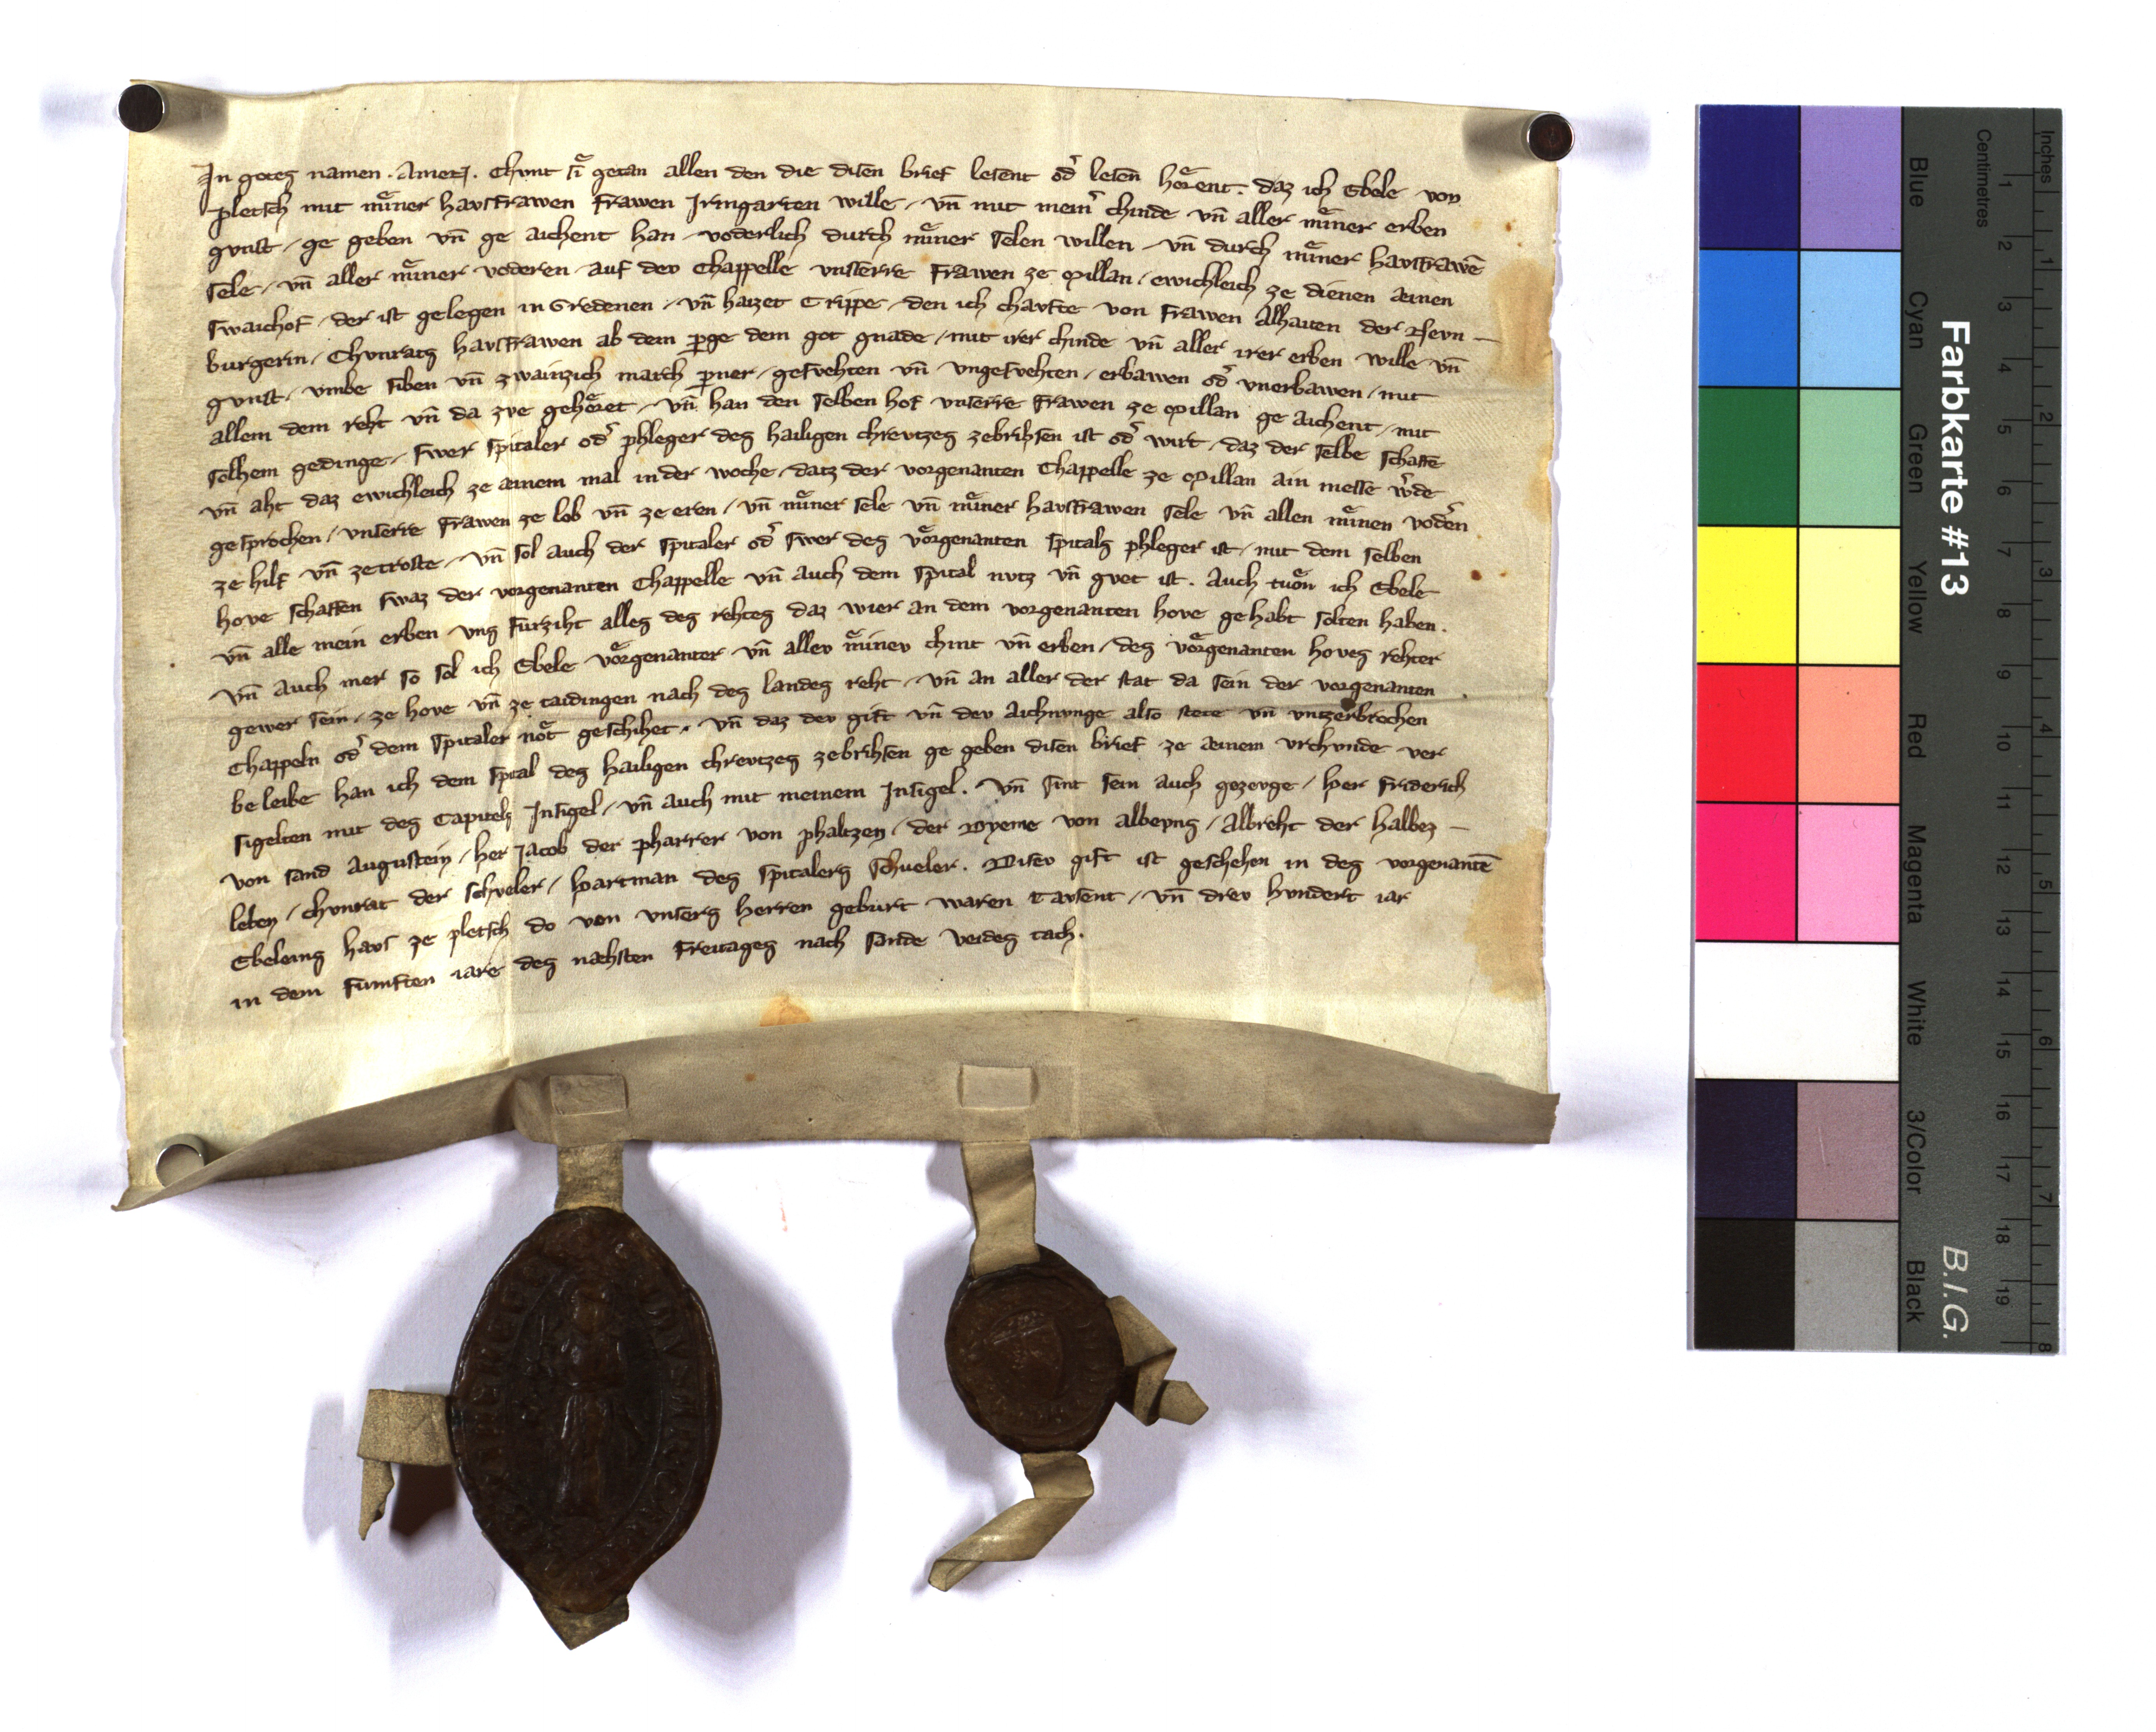 In gotes namen. Amen. Chvnt si getan allen den die disen brief lesent od̛ lesen hoͤrent. daz ich Ebele von
pletsch mit miͤner havsfrawen frawen Irmgarten wille, vn̄ mit mein̛ chinde vn̄ aller miͤner erben
gvnst, ge geben vn̄ ge aichent han, voderlich durch miͤner selen willen, vn̄ durch miͤner havsfrawē
sele, vn̄ aller miͤner voderen, auf dev Chappelle vnserre frawen ze Millan, ewichleich ze dienen ainen
swaichof, der ist gelegen in Gredenen, vn̄ haizet Trippe, den ich chavfte von frawen Alhaiten der Nevn-
burgerin, Chvnrats havsfrawen ab dem p̱ge dem got gnade, mit irer chinde vn̄ aller irer erben wille vn̄
gvnst, vmbe siben vn̄ zwainzich march p̱ner, gesvehten vn̄ vngesvehten, erbawen od̛ vnerbawen, mit
allem dem reht vn̄ da zve gehoͤret, vn̄ han den selben hof vnserre frawen ze Millan ge aichent, mit
solhem gedinge, swer spitaler od̛ phleger des hailigen chrevtzes zebrihsen ist od̛ wirt, daz der selbe schaffe
vn̄ aht daz ewichleich ze ainem mal in der woche, datz der vorgenanten Chappelle ze Millan ain messe w̛de
gesprochen, vnserre frawen ze lob vn̄ ze eren, vn̄ miͤner sele vn̄ miͤner havsfrawen sele vn̄ allen miͤnen vod̛en
ze hilf vn̄ ze troste, vn̄ sol auch der spitaler od̛ swer des voͤrgenanten spitals phleger ist, mit dem selben
hove schaffen swaz der vorgenanten Chappelle vn̄ auch dem spital nvtz vn̄ gvet ist. Auch tuͦn ich Ebele
vn̄ alle mein erben vns furziht alles des rehtes daz wier an dem vorgenanten hove gehabt solten haben.
vn̄ auch mer so sol ich Ebele voͤrgenanter vn̄ allev miͤnev chint vn̄ erben, des voͤrgenanten hoves rehter
gewer sein, ze hove vn̄ ze taidingen nach des landes reht, vn̄ an aller der stat da sein der vorgenanten
Chappeln od̛ dem spitaler noͤt geschihet, vn̄ daz dev gift vn̄ dev aichnvnge also stete vn̄ vntzerbrochen
be leibe han ich dem spital des hailigen chrevtzes zebrihsen ge geben disen brief ze ainem vrchvnde ver
sigelten mit des Capitels Insigel, vn̄ auch mit meinem Insigel. vn̄ sint sein auch gezevge, her Friderich
von sand Augustein, her Jacob der pharrer von phaltzen, der Dyeme von albeyns, Albreht der halbez-
leben, chvnrat der schveler, hartman des spitalers schueler. Disev gift ist geschehen in des vorgenantē
Ebeleins havs ze pletsch do von vnsers herren geburt waren tavsent, vn̄ drev hvndert iar
in dem fumften iare des nachsten Freitages nach sande veides tach.
Farbkarte #13
B.I.G.
Blue Cyan Green Yellow Red Magenta White 3/Color Black
Centimetres 1 2 3 4 5 6 7 8 9 10 11 12 13 14 15 16 17 18 19
Inches 1 2 3 4 5 6 7 8